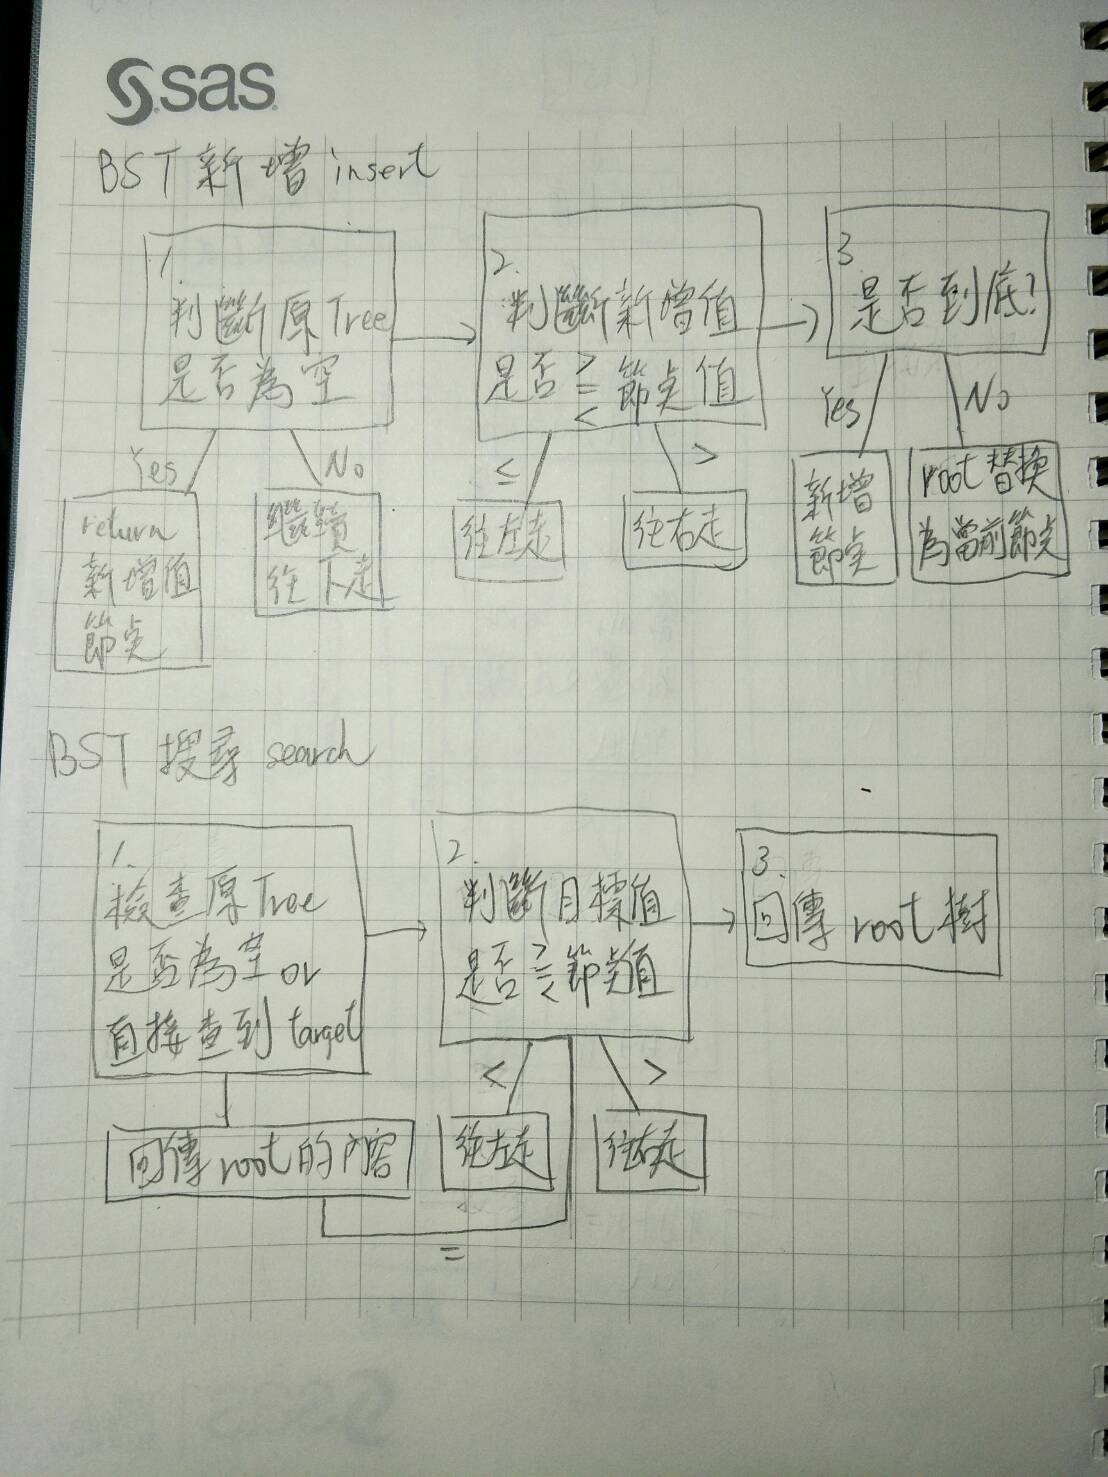 sas
BST 新增 insert
1.
判斷原Tree
是否為空
Yes
No
return
新增值
節点
繼續
往下走
2.
判斷新增值
是否 > = < 節点值
≤
>
往左走
往右走
3
是否到底?
Yes
No
新增
節点
root替換
為當前節点
BST 搜尋 search
1.
檢查原Tree
是否為空 or
直接查到 target
回傳 root 的內容
2.
判斷目標值
是否 > = < 節点值
<
>
往左走
往右走
=
3.
回傳 root 樹